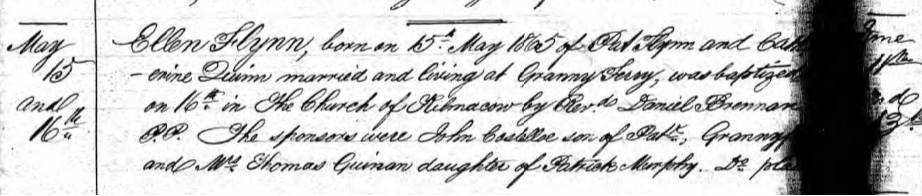 May Ellen Flynn, born on 15th May 1865 of Pat Flynn and Cath June
15 -erine Quinn married and living at Granny Ferry, was baptized 11th
and on 16th in The Church of Kilmacow by Revd Daniel Brennan and
16th P.P. The sponsors were John Costelloe son of Patk, Granny 13th
and Mrs Thomas Guinan daughter of Patrick Murphy. Do pla